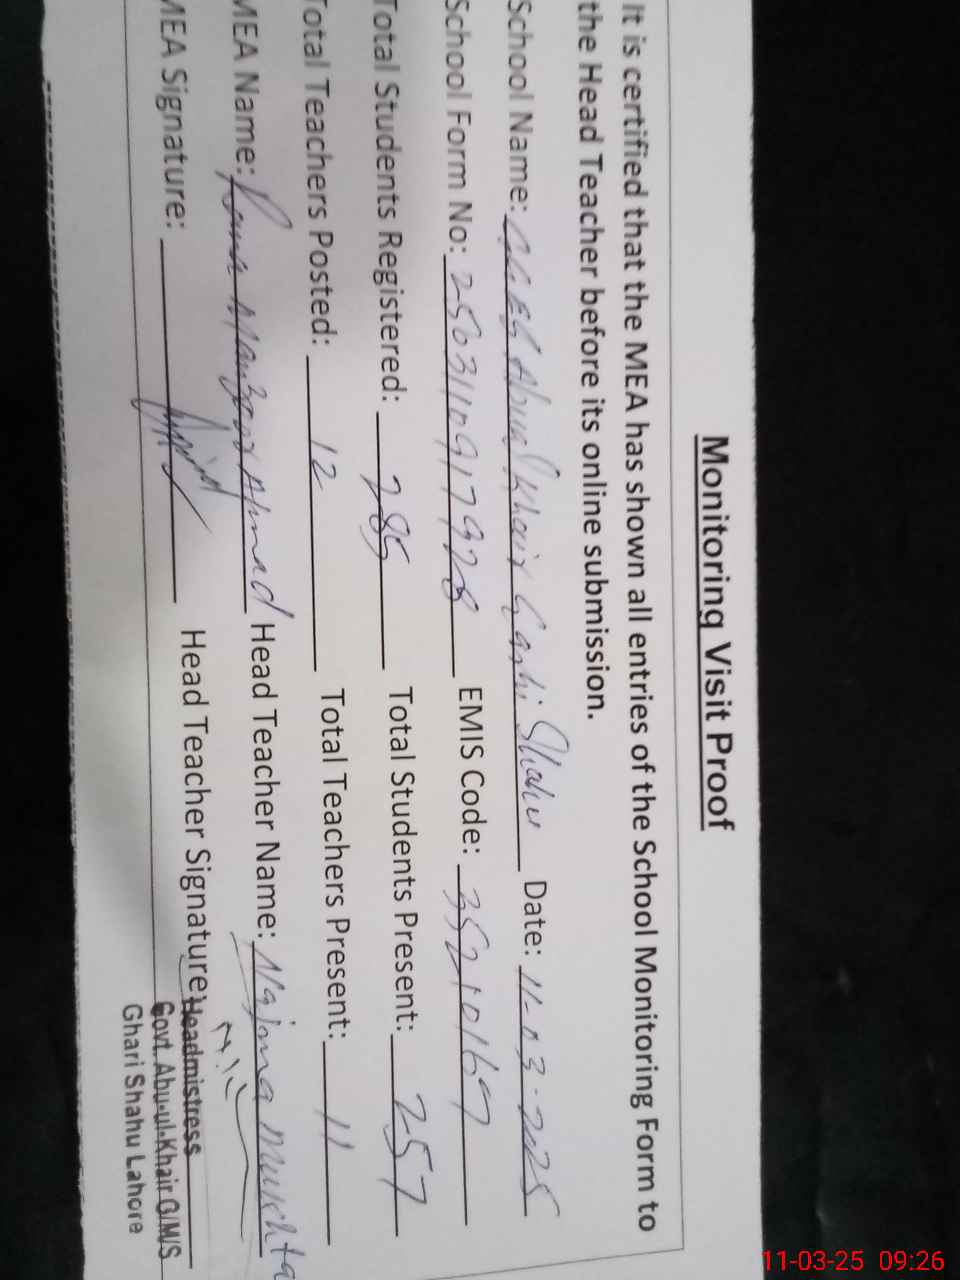 Monitoring Visit Proof
It is certified that the MEA has shown all entries of the School Monitoring Form to
the Head Teacher before its online submission.
School Name: Abual Khair Garhi Shahu Date: 11-03-2025
School Form No: 2503110917928 EMIS Code: 35210167
Total Students Registered: 285 Total Students Present: 257
Total Teachers Posted: 12 Total Teachers Present: 11
MEA Name: Rana Manzoor Ahmad Head Teacher Name: Najma Mushta
MEA Signature: Head Teacher Signature:
Headmistress
Govt. Abu-ul-Khair G/M/S
Ghari Shahu Lahore
11-03-25 09:26